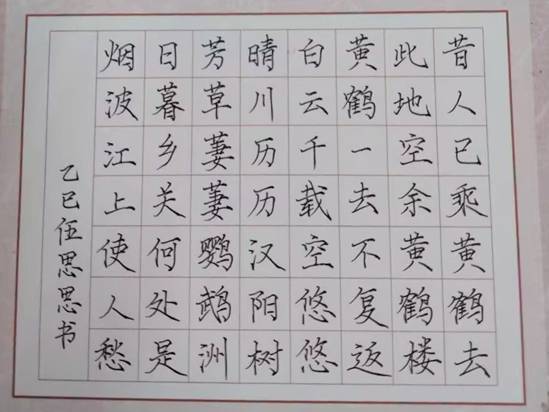 昔人已乘黄鹤去
此地空余黄鹤楼
黄鹤一去不复返
白云千载空悠悠
晴川历历汉阳树
芳草萋萋鹦鹉洲
日暮乡关何处是
烟波江上使人愁
乙巳伍思思书